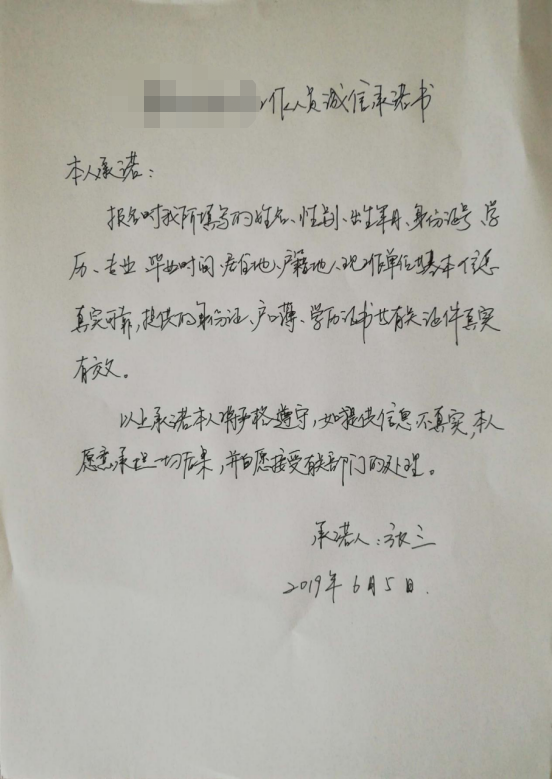 作人员诚信承诺书
本人承诺：
报名时我所填写的姓名、性别、出生年月、身份证号、学
历、专业、毕业时间、居住地、户籍地、现工作单位等基本信息
真实可靠，提供的身份证、户口薄、学历证书等有关证件真实
有效。
以上承诺本人将严格遵守，如提供信息不真实，本人
愿意承担一切后果，并自愿接受有关部门的处理。
承诺人：张三
2019年6月5日.